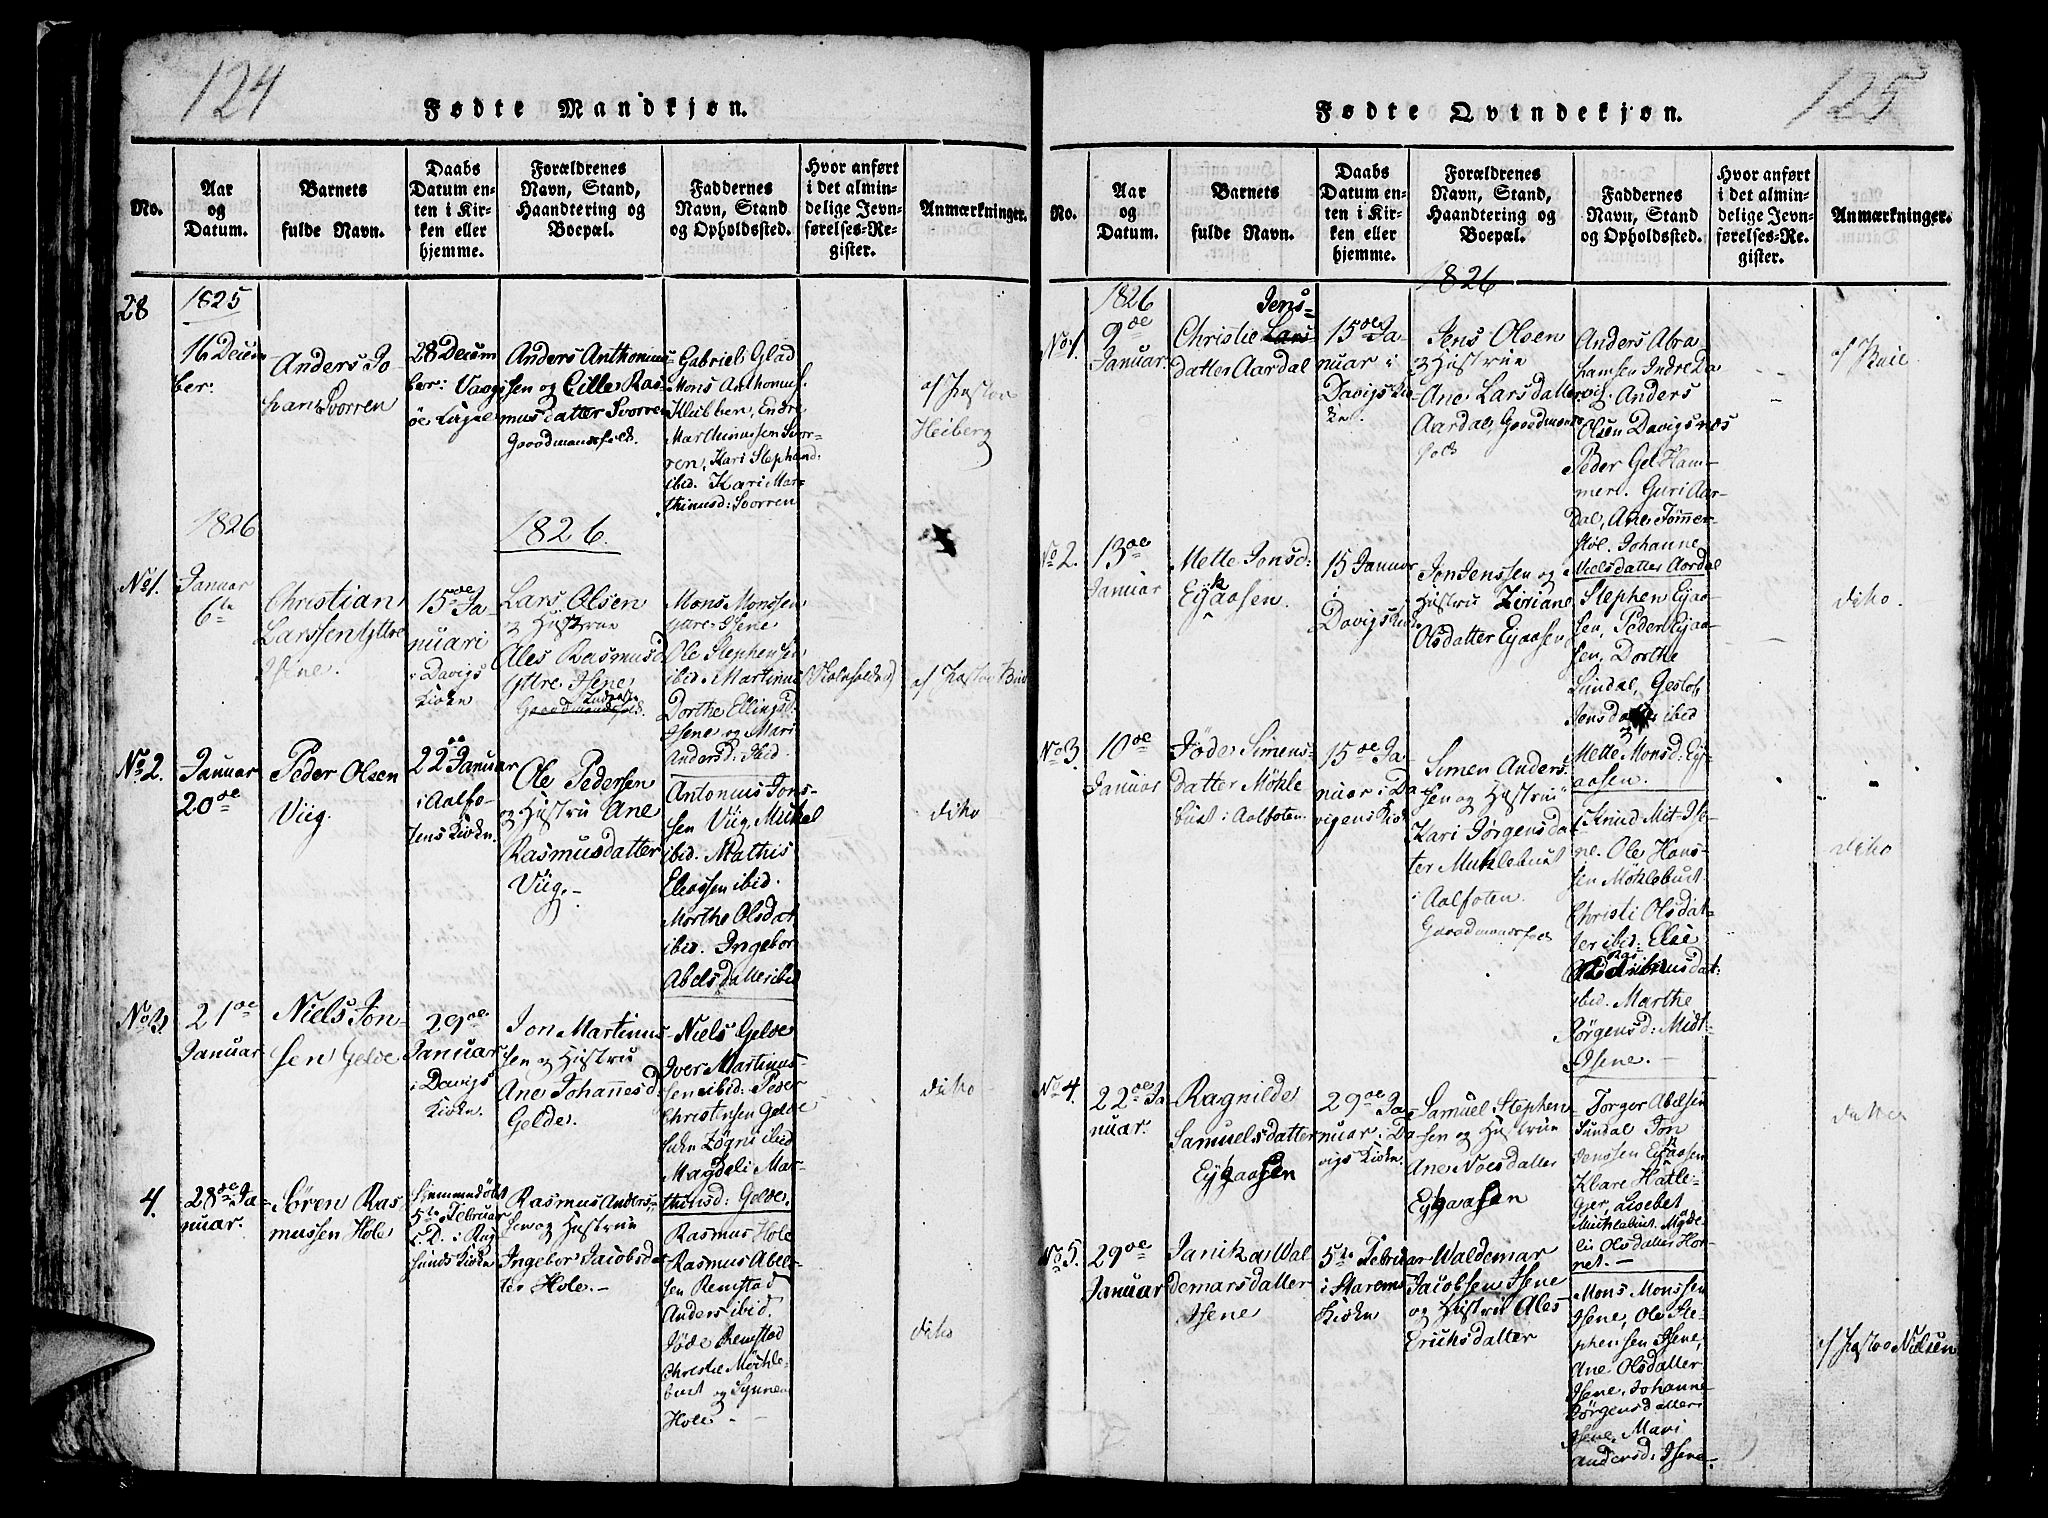 124
Fødte Mandkjøn.
No.
Aar
og
Datum.
Barnets
fulde Navn.
Daabs
Datum en-
ten i Kir-
ken eller
hjemme.
Forældrenes
Navn, Stand,
Haandtering og
Boepæl.
Faddernes
Navn, Stand
og Opholdssted.
Hvor anført
i det almin-
delige Jevn-
førelses-Re-
gister.
Anmærkninger.
28
1825
16 Decem
ber:
Anders Jo-
han Svorren
28 Decem
ber: Vaags
øe Kirke
Anders Anthonius-
sen og Cille Ras-
musdatter Svorren
Gaardmandsfolk.
Gabriel Glad
Mons Anthoniusf.
Klubben, Endre
Marthinussen Svor-
ren, Kari Stephand:
ibid. Kari Mar-
thinusd: Svorren
af Pastor
Heiberg
1826
1826.
No 1.
Januar
6te
Christian
Larssen Yttre
Isene.
15de Ja
nuar i
Davigs
Kirke
Lars Olsen
og Hustrue
Ales Rasmusd
Yttre Isene
Gaardmandsfolk.
Mons Monssen
Yttre Isene
Ole Stephensen
ibid. Martinus
Dorthe Ellingsd:
Isene og Mari
Andersd: ibid.
af Pastor Buie
No 2.
Januar
20de
Peder Olsen
Viig.
22de Januar
i Aalfo-
tens Kirke
Ole Pedersen
og Hustru Ane
Rasmusdatter
Viig.-
Antonius Jons-
sen Viig, Mikel
ibid. Mathis
Eliassen ibid.
Marthe Olsdat
ibid. Ingebor
Abelsdatter ibid
dito
No 3
21de
Januar
Niels Jon-
sen Gelde
29de
Januar
i Davigs
Kirke.
Jon Martinus-
sen og Hustru
Ane Johannesd
Gelde.
Niels Gelde
Iver Martinus-
sen ibid: Peder
Christensen Gelde
ibid
Magdeli Mar-
thinusd: Gelde.
dito
4.
28de Ja-
nuar.
Søren Ras-
mussen Hole
Hjemmedøbt
5te Februar
i Rug
sunds Kirke
Rasmus Anders-
sen og Hustrue
Ingebor Jacobsda
ter Hole.-
Rasmus Hole
Rasmus Abel-
sen Remstad
Anders ibid.
Jøde Remstad
Christie Møkle-
bust og Synneve
Hole.-
dito
125
Fødte Qvindekjøn.
No.
Aar
og
Datum.
Barnets
fulde Navn.
Daabs
Datum en-
ten i Kir-
ken eller
hjemme.
Forældrenes
Navn, Stand,
Haandtering og
Boepæl.
Faddernes
Navn, Stand
og Opholdssted.
Hvor anført
i det almin-
delige Jevn-
førelses-Re-
gister.
Anmærkninger.
1826
1826
No 1.
9de
Januar.
Jens-
Christie Lars
datter Aardal
15de Ja
nuar i
Davigs Kir
ke.
Jens Olsen
og Hustrue
Ane Larsdatter
Aardal, Gaardmands
folk
Anders Abra
hamsen Indre Da
vig. Anders
Olsen Davigsnæs
Peder Gel Ham-
mer. Guri Aar-
dal, Ane Tømmer-
støl. Johanne
Nielsdatter Aardal
af Buie
No 2.
13de
Januar
Mette Jonsd:
Eikaasen.
15 Januar
i
Davigs Kirke
Jon Jenssen og
Hustru Ziriane
Olsdatter Eyaasen
Stephen Eyaa-
sen, Peder Eyaa-
sen, Dorthe
Sundal, Gestof
Jonsdatter ibid
Mette Monsd: Ey-
aasen.
dito.
No 3.
10de
Januar
Jøde Simens-
datter Møkle
bust i Aalfoten.
15de Ja-
nuar i Da
vigens Kirke
Simen Anders
sen og Hustrue
Kari Jørgensda
ter Muklebust
i Aalfoten.
Gaardmandsfolk
Knud Mit-Ise-
ne. Ole Hans-
sen Møklebust
Christi Olsdat-
ter ibid: Elsie
ibid. Marthe
Jørgensd: Midt-
Isene.-
dito
No 4.
22de Ja
nuar.
Ragnilde
Samuelsdatter
Eykaasen
29de Ja-
nuar i Da
vigs Kirke
Samuel Stephen
sen og Hustrue
Ane Noesdatter
Eykaasen
Torger Abelsen
Sundal Jon
Jenssen Eykaasen
Klare Hatle-
Gjer, Lisebet
Muklebust. Magde-
lis Olsdatter Hor-
net.-
dito
No 5.
29de
Januar
Janika Wal
demarsdatter
Isene
5te Februar
i Starems
Kirke
Waldemar
Jacobsen Isene
og Hustru Ales
Erichsdatter
Mons Monssen
Isene, Ole Ste-
phenssen Isene,
Ane Olsdatter
Isene, Johanne
Jørgensdatter
Isene, Mari
Andersd: Isene.
af Pastor Nielsen